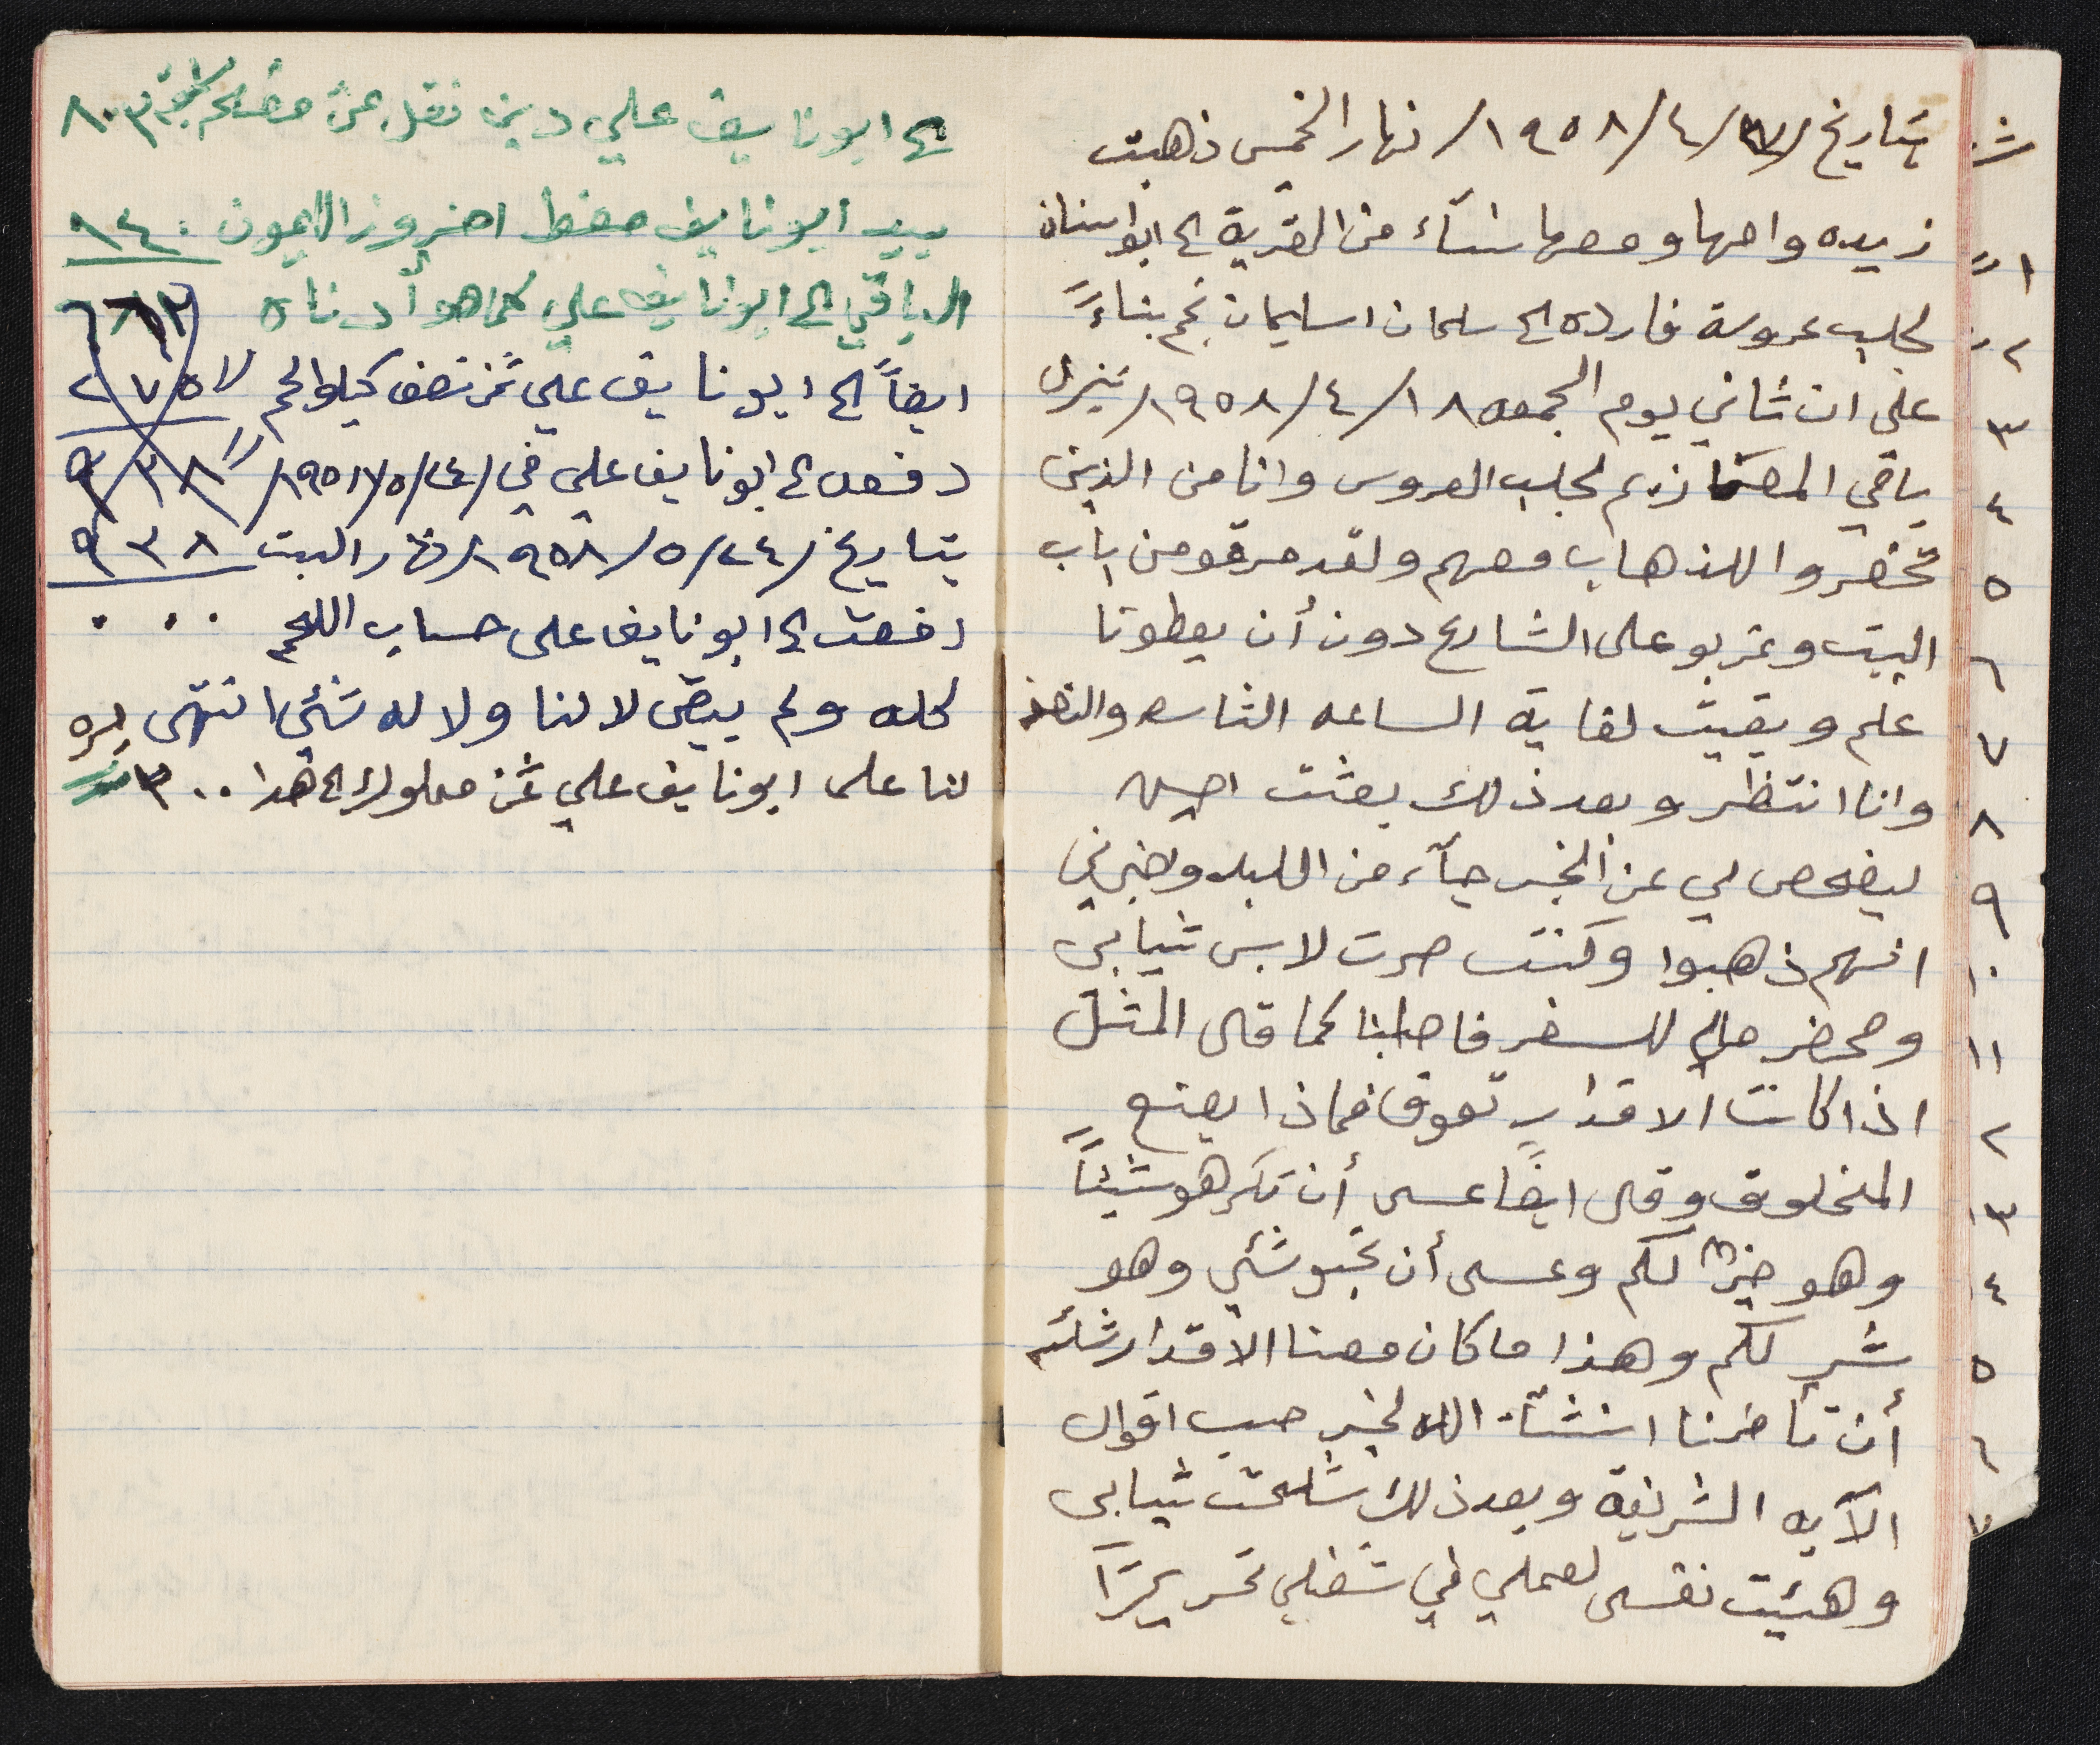 بتاريخ /١٧/٤/١٩٥٨/ نهار الخمس ذهبت
زيده وامها ومعها نسآء من القرية الى ابو سنان
لجلب عروسة فارده الى سلمان اسليمان نجم بناءً
على ان ثاني يوم الجمعه ١٨/٤/١٩٥٨/ ينزل
باقي المعازيم لجلب العروس وانا من الذين
تحضروا للذهاب معهم ولقد مرقو من باب
البيت وغربو على الشارع دون أن يعطونا
علم وبقيت لغاية الساعه الثامنه والنصف
وانا انتظر وبعد ذلك بعثت
ليفحص لي عن الخبر جآء من البلد وخبرني
انهم ذهبوا وكنت صرت لابس ثيابي
ومحضر حالي للسفر فاصابنا كما قال المثل
اذا كانت الاقدار تعوق فماذا يصنع
المخلوق وقال ايضاً عسى أن تكرهو شيئاً
وهو خيرٌ لكم وعسى أن تحبو شئي وهو
شر لكم وهذا ما كان معنا الاقدار شائت
أن تأخرنا انشآء الله لخير حسب اقوال
الآيه الشريفة وبعد ذلك شلحت ثيابي
وهيئت نفسي لعملي في شغلي تحريراً
الى ابو نايف علي دين نقل عن صفحة ٨٠٣
بيد ابو نايف فقط اجرة الليمون ١٤٠
الباقي الى ابو نايف علي كما هو أدناه ٦٦٣
ايضاً الى ابو نايف علي ثمن نصف كيلو لحم ٢٧٥
دفعه الى ابو نايف علي في /٢٤/٥/١٩٥٨/ ٩٣٨
بتاريخ /٢٤/٥/١٩٥٨/ نهار السبت ٩٣٨
دفعت الى ابو نايف على حساب اللحم ٠٠٠
كله ولم يبقى لا لنا ولا له شئي انتهى
لنا على ابو نايف علي ثمن معلولك الى هدا ٣٠٠
ش
١
٢
٣
٤
٥
٦
٧
٨
٩
١٠
١١
٢
٣
٤
٥
٦
٧